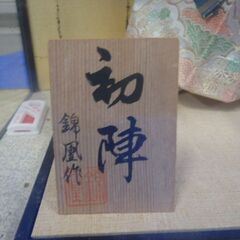 初陣
錦凰作